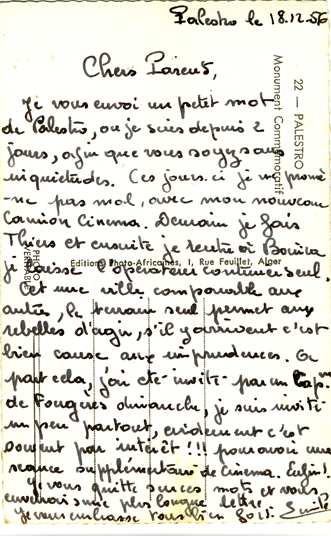 Palestro le 18.12.56
Chers Parents,
Je vous envoi un petit mot
de Palestro, ou je suis depuis 2
jours, afin que vous soyez sans
inquietudes. Ces jours ci je me promè
-ne pas mal, avec mon nouveau
Camion Cinema. Demain je fais
Thiers et ensuite je rentre à Bouira
je laisse l'operateur continuer seul.
Cet une ville comparable aux
autres, le terrain seul permet aux
rebelles d'agir, s'il y arrivent c'est
bien cause aux imprudences. A
part cela, j'ai été invité par un Cap.
de Fougères dimanche, je suis invité
un peu partout, evidement c'est
souvent par intérêt !!! pour avoir une
seance supplementaire de Cinema. Enfin!
Je vous quitte sur ces mots et vous
enverrais une plus longue lettre.
Je vous embrasse tous bien fort.
22 — PALESTRO
Monument Commémoratif
Editions Photo-Africaines, 1, Rue Feuillet, Alger
PHOTO